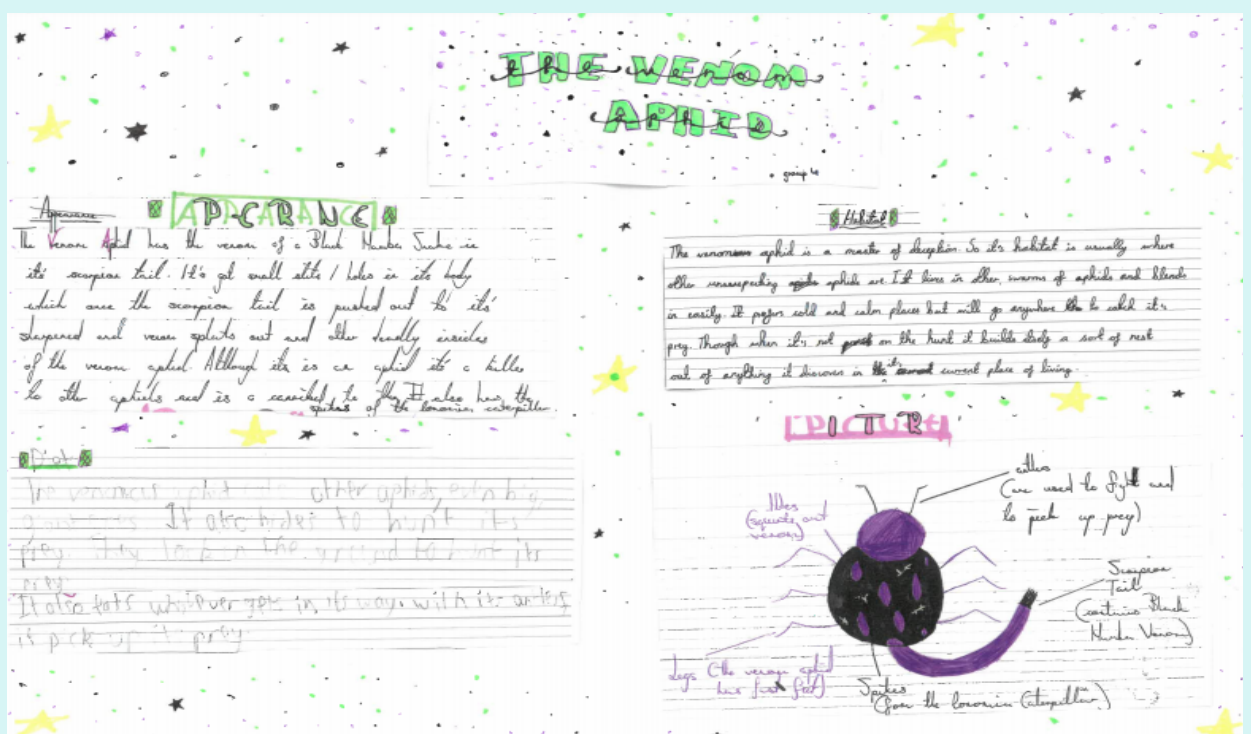 THE VENOM
APHID
group 4
Appearance
APPEARANCE
The Venom Aphid has the venom of a Black Mamba Snake in
its' scorpion tail. It's got small slits / holes in its body
which once the scorpion tail is pushed out to it's
sharpened and venom splurts out and other deadly insides
of the venom aphid. Although its is an aphid it's a killer
to other aphids and is a cannibal to they It also has the
spikes of the lonomia caterpillar.
Habitat
The venomous aphid is a master of deception. So it's habitat is usually where
other unsuspecting aphids are. It lives in other swarms of aphids and blends
in easily. It prefers cold and calm places but will go anywhere to catch it's
prey. Though when it's not on the hunt it builds itself a sort of nest
out of anything it discovers in it's current place of living.
Diet
The venomous aphid other aphids, even big
It also hides to hunt its
prey. They on the ground to its
prey.
It also eats whatever gets in its way. with its
it pick up it prey
PICTURE
Holes
(squirts out
venom)
(are used to fight and
to pick up prey)
Scorpion
Tail
(contains Black
Mamba Venom)
Legs (the venom aphid
has feet)
Spikes
(from the lonomia Caterpillar)